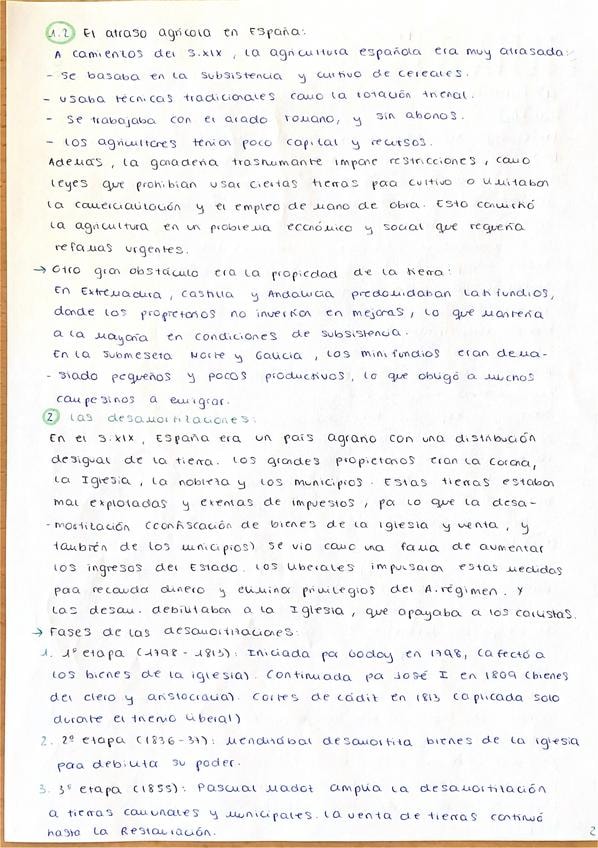 1.2 El atraso agrícola en España:
A comienzos del S.XIX, la agricultura española era muy atrasada:
- Se basaba en la subsistencia y cultivo de cereales.
- usaba técnicas tradicionales como la rotación trienal.
- Se trabajaba con el arado romano, y sin abonos.
- Los agricultores tenían poco capital y recursos.
Además, la ganadería trashumante impone restricciones, como
leyes que prohibían usar ciertas tierras para cultivo o limitaban
la comercialización y el empleo de mano de obra. Esto convirtió
la agricultura en un problema económico y social que requería
reformas urgentes.
→ Otro gran obstáculo era la propiedad de la tierra:
En Extremadura, Castilla y Andalucía predominaban latifundios,
donde los propietarios no invertían en mejoras, lo que mantenía
a la mayoría en condiciones de subsistencia.
En la Submeseta Norte y Galicia, los minifundios eran dema-
- siado pequeños y pocos productivos, lo que obligó a muchos
campesinos a emigrar.
2 Las desamortizaciones:
En el S.XIX, España era un país agrario con una distribución
desigual de la tierra. Los grandes propietarios eran la Corona,
la Iglesia, la nobleza y los municipios. Estas tierras estaban
mal explotadas y exentas de impuestos, por lo que la desa-
- mortización (confiscación de bienes de la iglesia y venta, y
también de los municipios) se vio como una forma de aumentar
los ingresos del Estado. Los liberales impulsaron estas medidas
para recaudar dinero y eliminar privilegios del A.régimen. Y
las desam. debilitaban a la Iglesia, que apoyaba a los carlistas.
→ Fases de las desamortizaciones:
1. 1º etapa (1798 - 1813): Iniciada por Godoy en 1798, (afectó a
los bienes de la iglesia). Continuada por José I en 1809 (bienes
del clero y aristocracia). Cortes de Cádiz en 1813 (aplicada solo
durante el trienio liberal)
2. 2º etapa (1836-37): Mendizábal desamortiza bienes de la iglesia
para debilitar su poder.
3. 3º etapa (1855): Pascual Madoz amplía la desamortización
a tierras comunales y municipales. La venta de tierras continuó
hasta la Restauración.
2